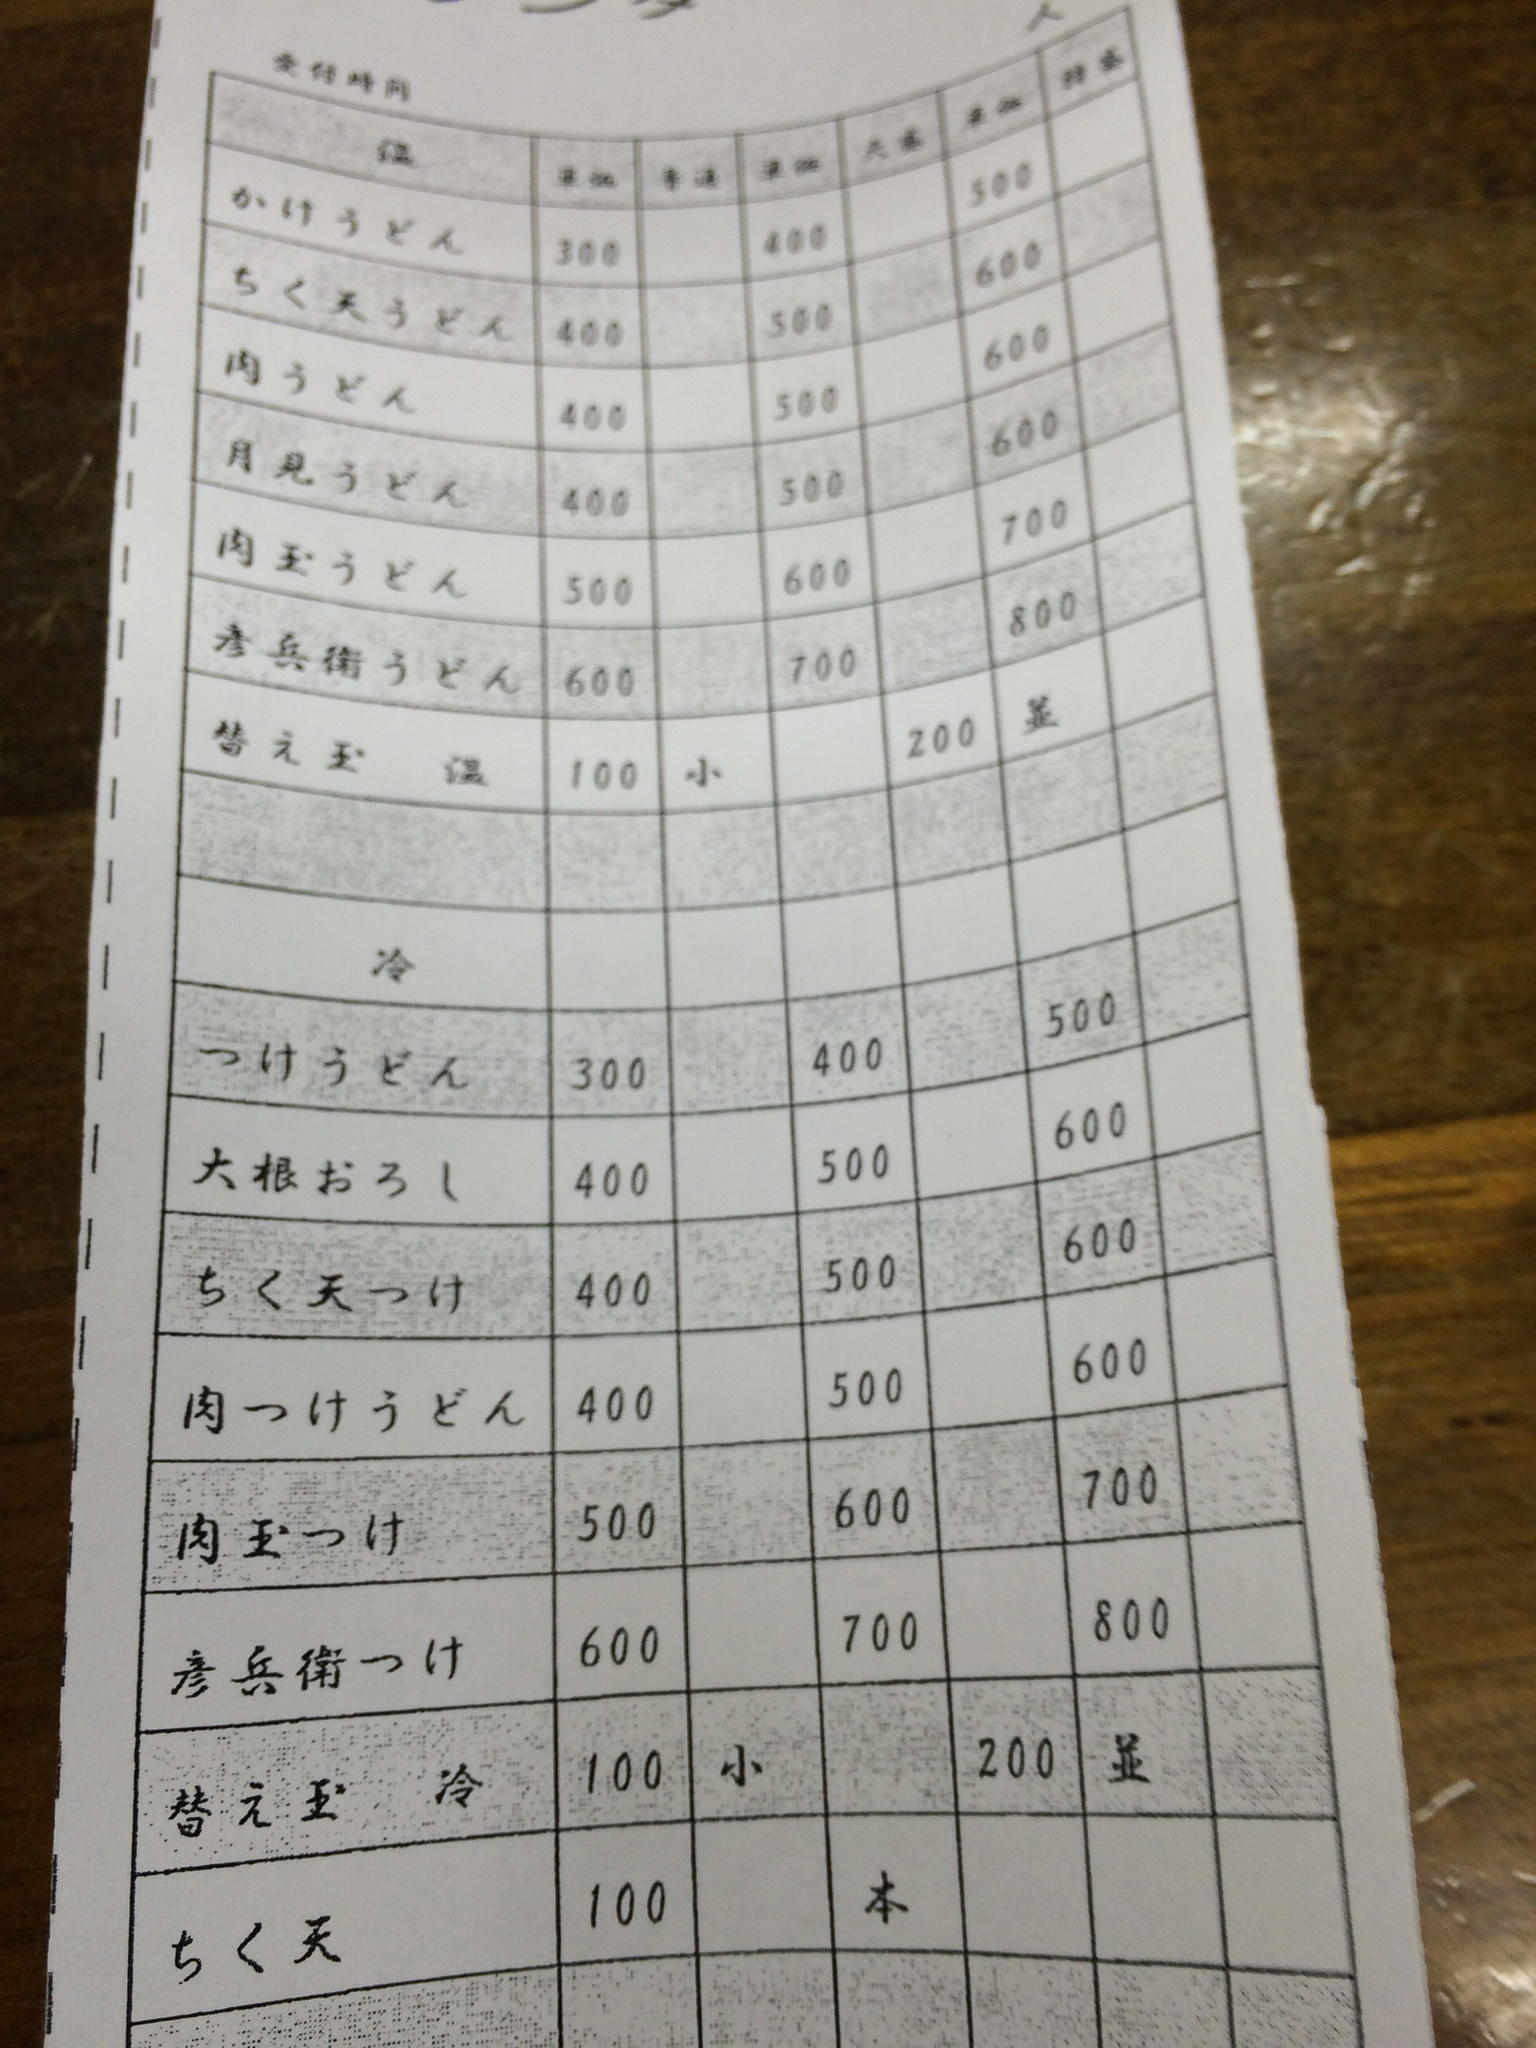 人
受付時間
温 単価 普通 単価 大盛 単価 特盛
かけうどん 300 400 500
ちく天うどん 400 500 600
肉うどん 400 500 600
月見うどん 400 500 600
肉玉うどん 500 600 700
彦兵衛うどん 600 700 800
替え玉 温 100 小 200 並
冷
つけうどん 300 400 500
大根おろし 400 500 600
ちく天つけ 400 500 600
肉つけうどん 400 500 600
肉玉つけ 500 600 700
彦兵衛つけ 600 700 800
替え玉 冷 100 小 200 並
ちく天 100 本